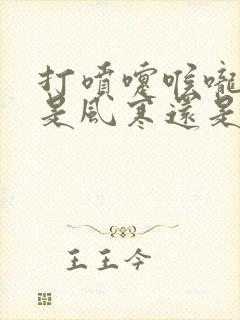 打噴嚏喉嚨
是風寒還是
王王今